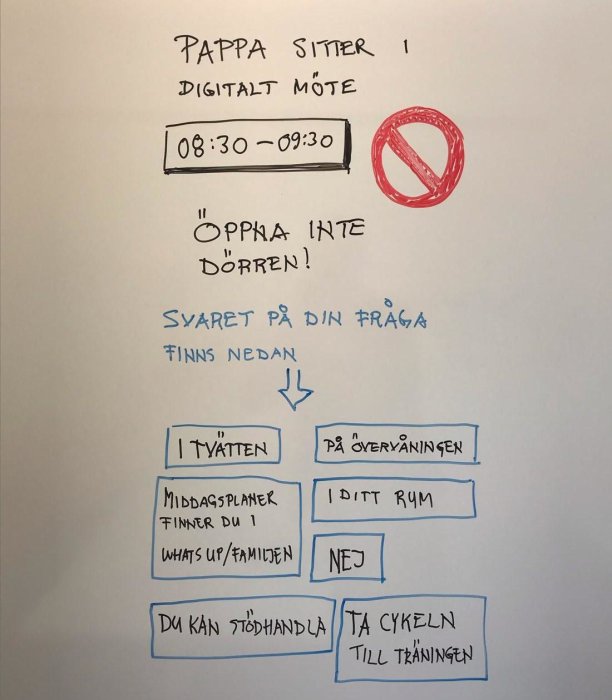 PAPPA SITTER I
DIGITALT MÖTE
08:30 – 09:30
ÖPPNA INTE
DÖRREN!
SVARET PÅ DIN FRÅGA
FINNS NEDAN
I TVÄTTEN
PÅ ÖVERVÅNINGEN
MIDDAGSPLANER
FINNER DU I
WHATS UP/FAMILJEN
I DITT RUM
NEJ
DU KAN STÖDHANDLA
TA CYKELN
TILL TRÄNINGEN